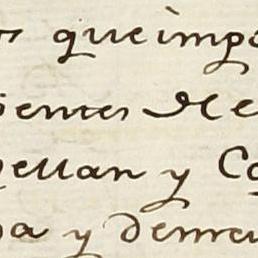 que impo
ientes de
ellan y Co
pa y demeu